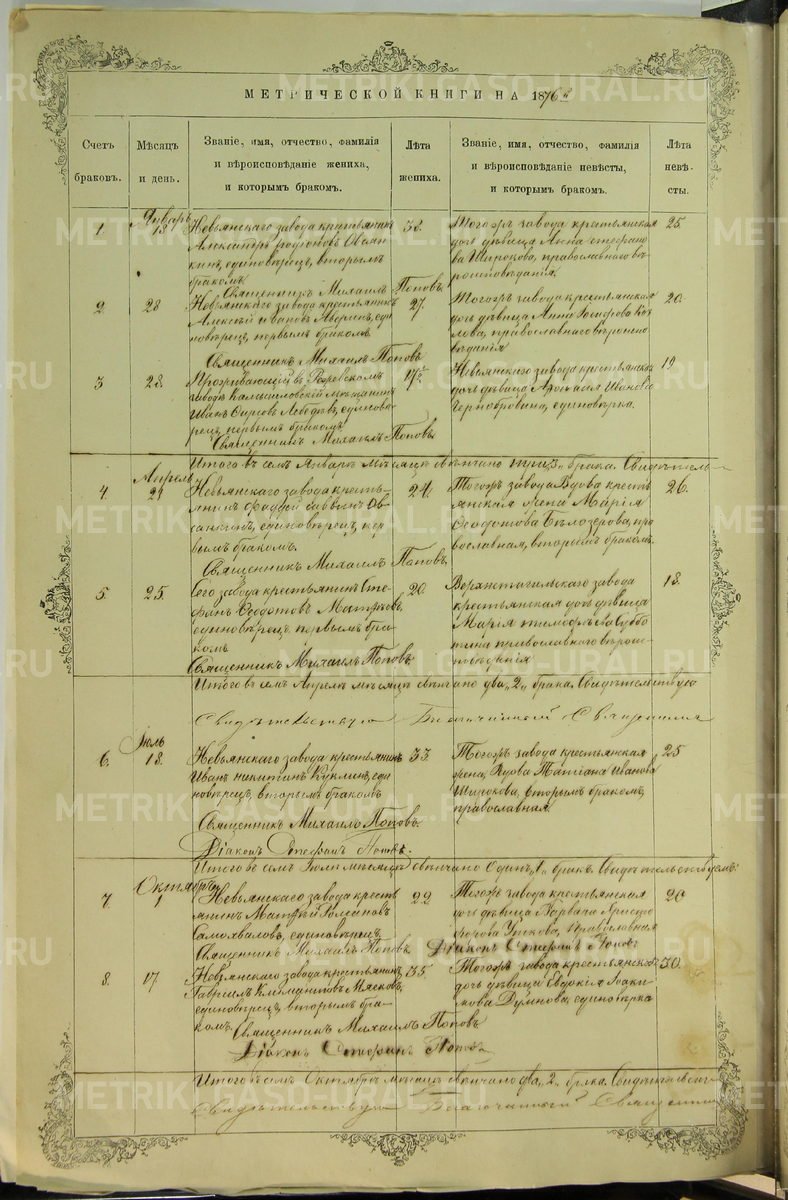 МЕТРИЧЕСКОЙ КНИГИ НА 1876 г.
Счетъ браковъ.
Мѣсяцъ и день.
Званіе, имя, отчество, фамилія
и вѣроисповѣданіе жениха,
и которымъ бракомъ.
Лѣта жениха.
Званіе, имя, отчество, фамилія
и вѣроисповѣданіе невѣсты,
и которымъ бракомъ.
Лѣта невѣсты.
Январь
1. 18.
Невьянскаго завода крестьянинъ
Александръ Родіоновъ Овсян-
кинъ, единовѣрецъ, вторымъ
бракомъ.
Священникъ Михаилъ Поповъ.
Тогожъ завода крестьянская
дочь дѣвица Анна Стефано-
ва Широкова, православнаго вѣ-
роисповѣданія.
25.
2 28
Невьянскаго завода крестьянинъ
Алексѣй Ивановъ
еди-
новѣрецъ, первымъ бракомъ.
Священникъ Михаилъ Поповъ
27.
Тогожъ завода крестьянская
дочь дѣвица Анна
Коз-
лова, православнаго вѣроиспо-
вѣданія
20.
3 28.
Проживающій въ
заводѣ Камышловскій мѣщанинъ
Иванъ Лебедевъ, единовѣ-
рецъ, первымъ бракомъ.
Священникъ Михаилъ Поповъ.
Невьянскаго завода крестьянск.
дочь дѣвица Иванова
Чернобровина, единовѣрка.
19
Итого въ семъ Январѣ мѣсяцѣ вѣнчано три, 3, брака.
Апрѣль
4. 21
Невьянскаго завода кресть-
янинъ Фаддей Саввинъ Ов-
сянкинъ, единовѣрецъ, пер-
вымъ бракомъ.
Священникъ Михаилъ Поповъ.
24.
Тогожъ завода вдова кресть-
янская жена Марія
Ѳеодотова Бѣлозерова, пра-
вославная, вторымъ бракомъ.
26.
5. 25.
Сего завода крестьянинъ Сте-
фанъ Ѳеодотовъ
единовѣрецъ первымъ бра-
комъ
Священникъ Михаилъ Поповъ
20.
Верхнетагильскаго завода
крестьянская дочь дѣвица
Марія Тимофѣева Суббо-
тина православнаго вѣроис-
повѣданія
18.
Итого въ семъ Апрѣлѣ мѣсяцѣ вѣнчано два, 2, брака.
Свидѣтельствую Благочинный Священникъ
Іюль
6. 18.
Невьянскаго завода крестьянинъ
Иванъ Никитинъ Куклинъ, еди-
новѣрецъ, вторымъ бракомъ
Священникъ Михаилъ Поповъ.
Діаконъ Стефанъ Поповъ.
33
Тогожъ завода крестьянская
жена, вдова Татіана Иванова
Широкова, вторымъ бракомъ,
православная.
25
Итого въ семъ Іюлѣ мѣсяцѣ вѣнчано одинъ, 1, бракъ. Свидѣтельствуемъ:
Октябрь
7. 1
Невьянскаго завода кресть-
янинъ Матѳей Романовъ
Самохваловъ, единовѣрецъ
Священникъ Михаилъ Поповъ.
22
Тогожъ завода крестьянская
дочь дѣвица Варвара Христо-
форова Уткова, православная
Діаконъ Стефанъ Поповъ
20
8. 17.
Невьянскаго завода крестьянинъ
Гавріилъ Климентовъ Мясковъ,
единовѣрецъ, вторымъ бра-
комъ.
Священникъ Михаилъ Поповъ
Діаконъ Стефанъ Поповъ
35
Тогожъ завода крестьянск.
дочь дѣвица Евдокія Іоаки-
мова единовѣрка
30.
Итого въ семъ Октябрѣ мѣсяцѣ вѣнчано два, 2, брака.
Свидѣтельствую Благочинный Священникъ
METRIKI.GASO-URAL.RU